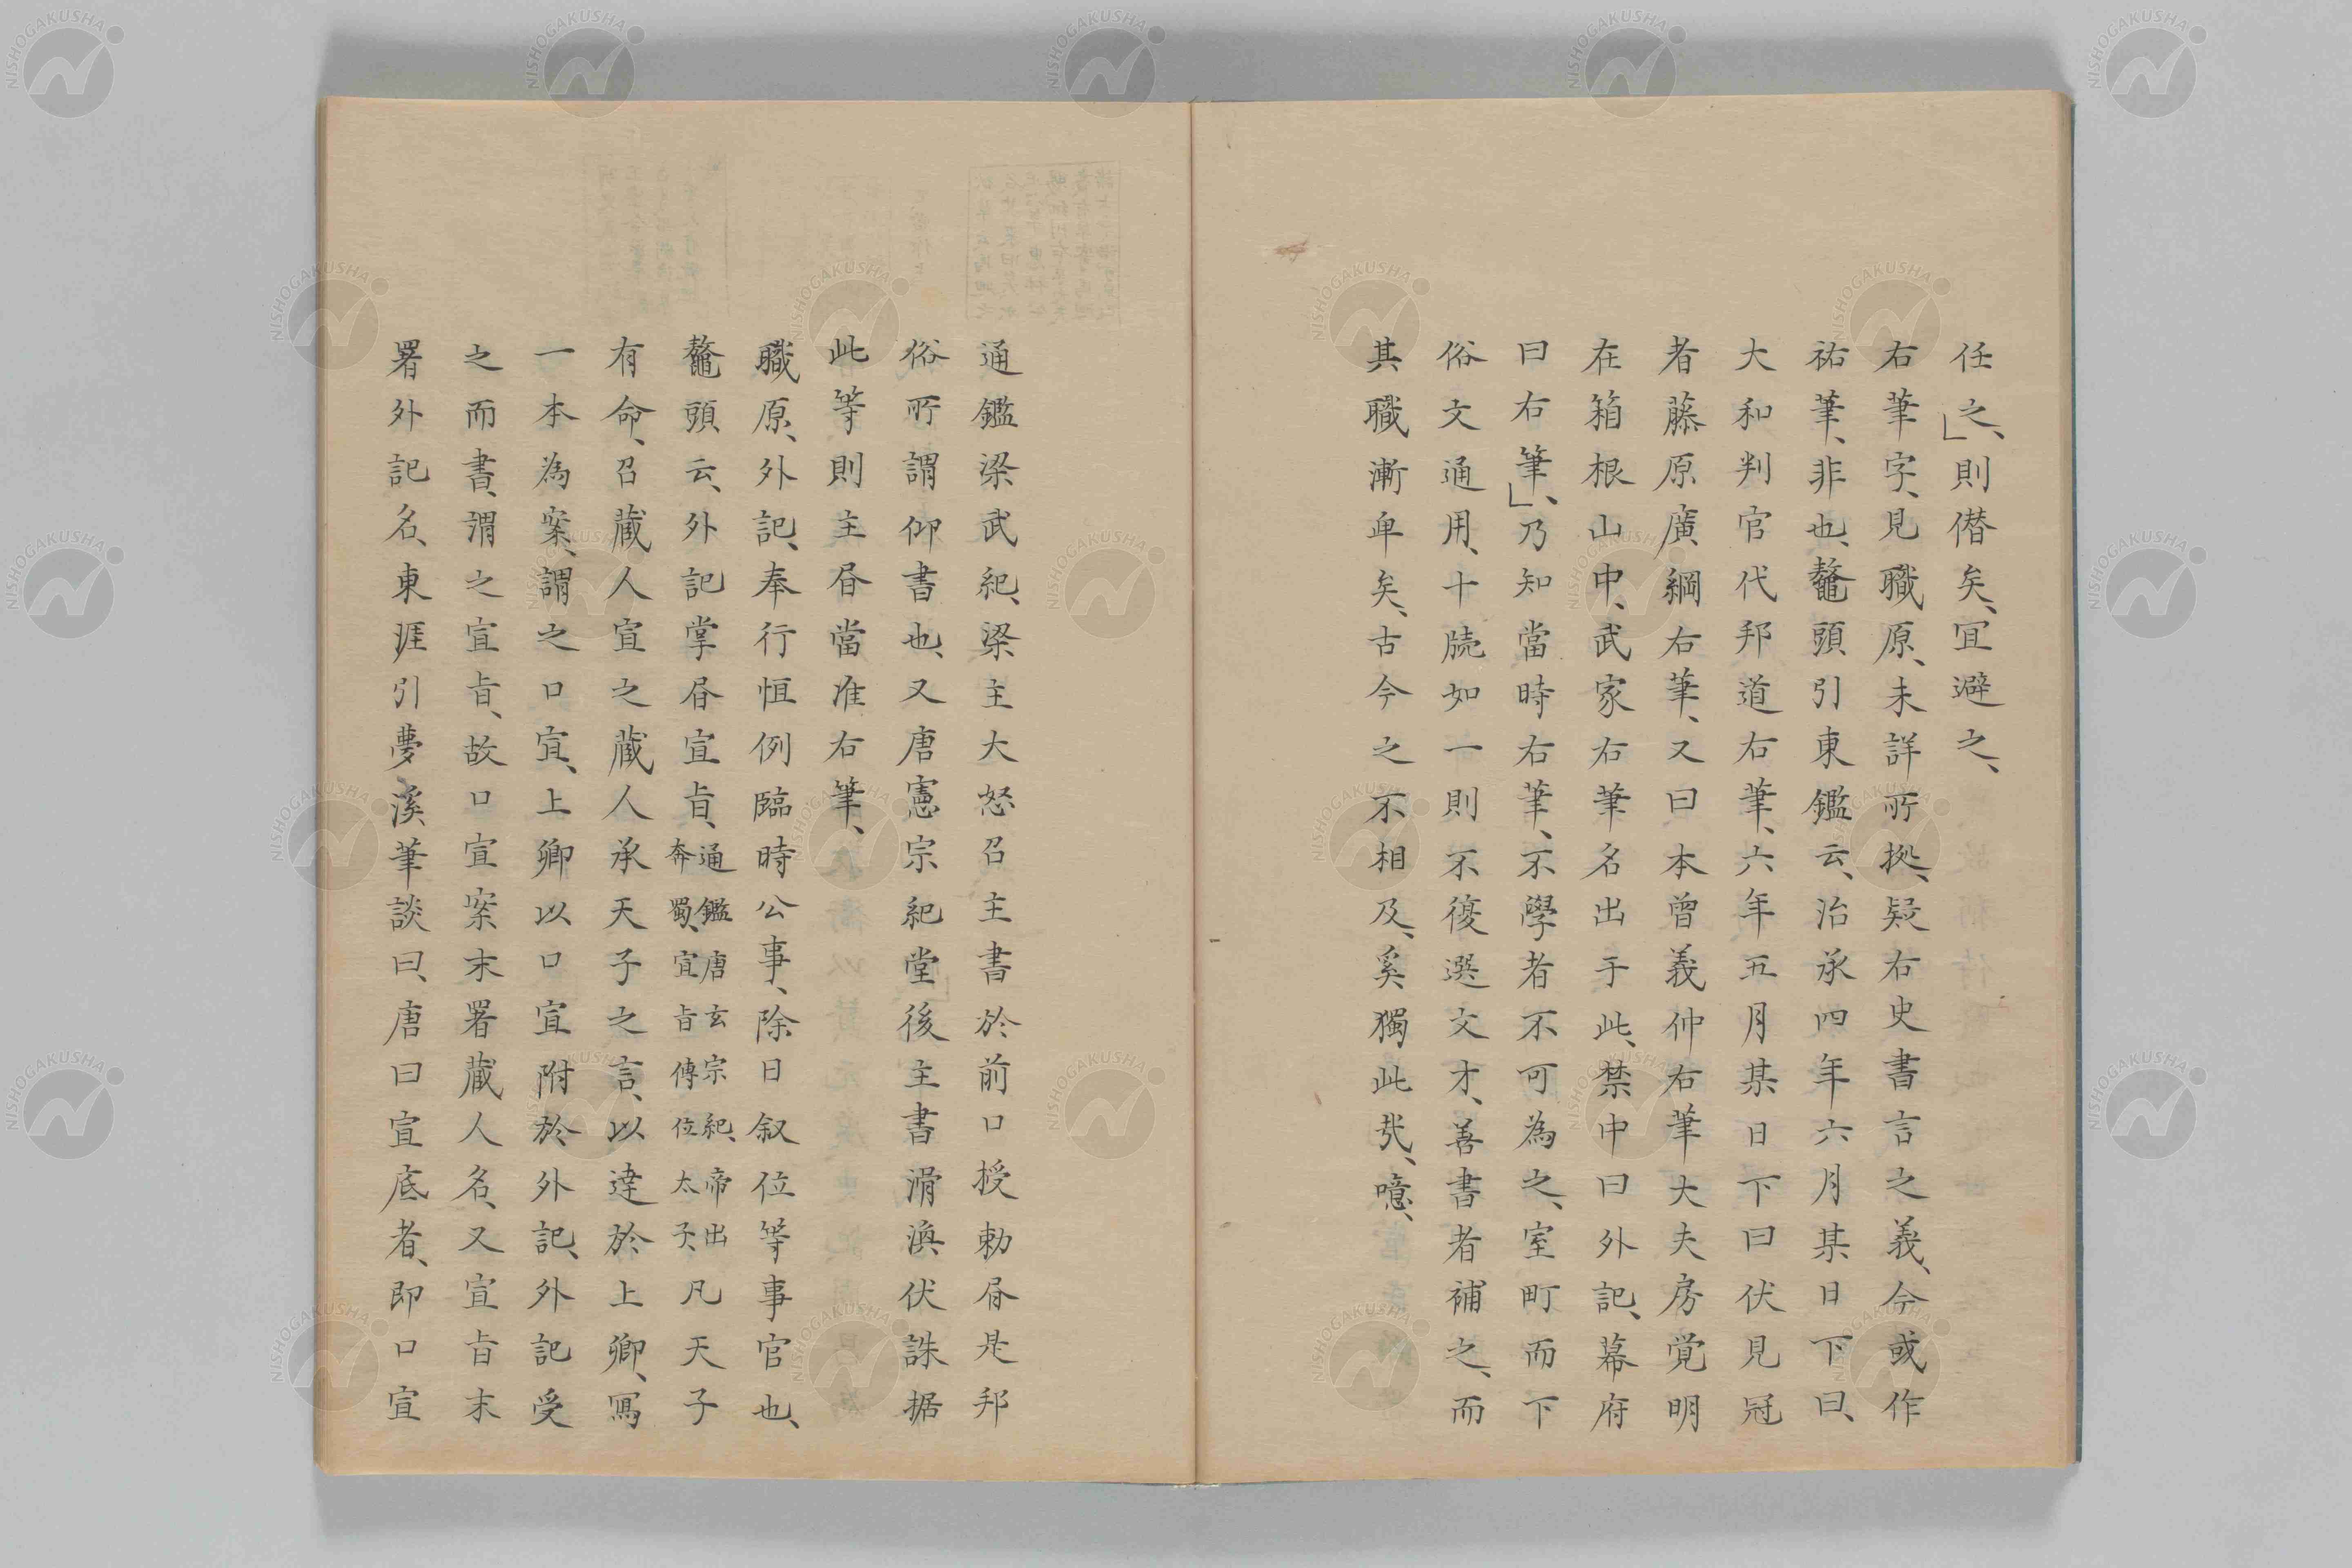 任之、」則僣矣、冝避之、
右筆字、見職原、未詳所拠、疑右史書言之義、今或作
祐筆、非也、鼇頭引東鑑云、治承四年六月某日下曰、
大和判官代邦道右筆、六年五月某日下曰伏見冠
者藤原廣綱右筆、又曰木曾義仲右筆大夫房覚明
在箱根山中、武家右筆名出于此、禁中曰外記、幕府
曰右筆」、乃知當時右筆、不學者不可為之、室町而下
俗文通用、十牘如一則不復選文才、善書者補之、而
其職漸卑矣、古今之不相及、奚獨此哉、噫、
通鑑梁武紀、梁主大怒召主書於前口授勅㫺是邦
俗所謂仰書也、又唐憲宗紀堂後主書滑渙伏誅据
此等則主㫺當准右筆、
職原、外記、奉行恒例臨時公事、除目叙位等事官也、
鼇頭云、外記掌㫺宣旨、通鑑唐玄宗紀、帝出奔蜀、宣旨傳位太子、凡天子
有命、召蔵人宣之蔵人承天子之言、以達於上卿、寫
一本為案、謂之口宣、上卿以口宣附於外記、外記受
之而書、謂之宣旨、故口宣案末署蔵人名、又宣旨末
署外記名、東涯引夢溪筆談曰、唐曰宣底者、即口宣
NISHOGAKUSHA